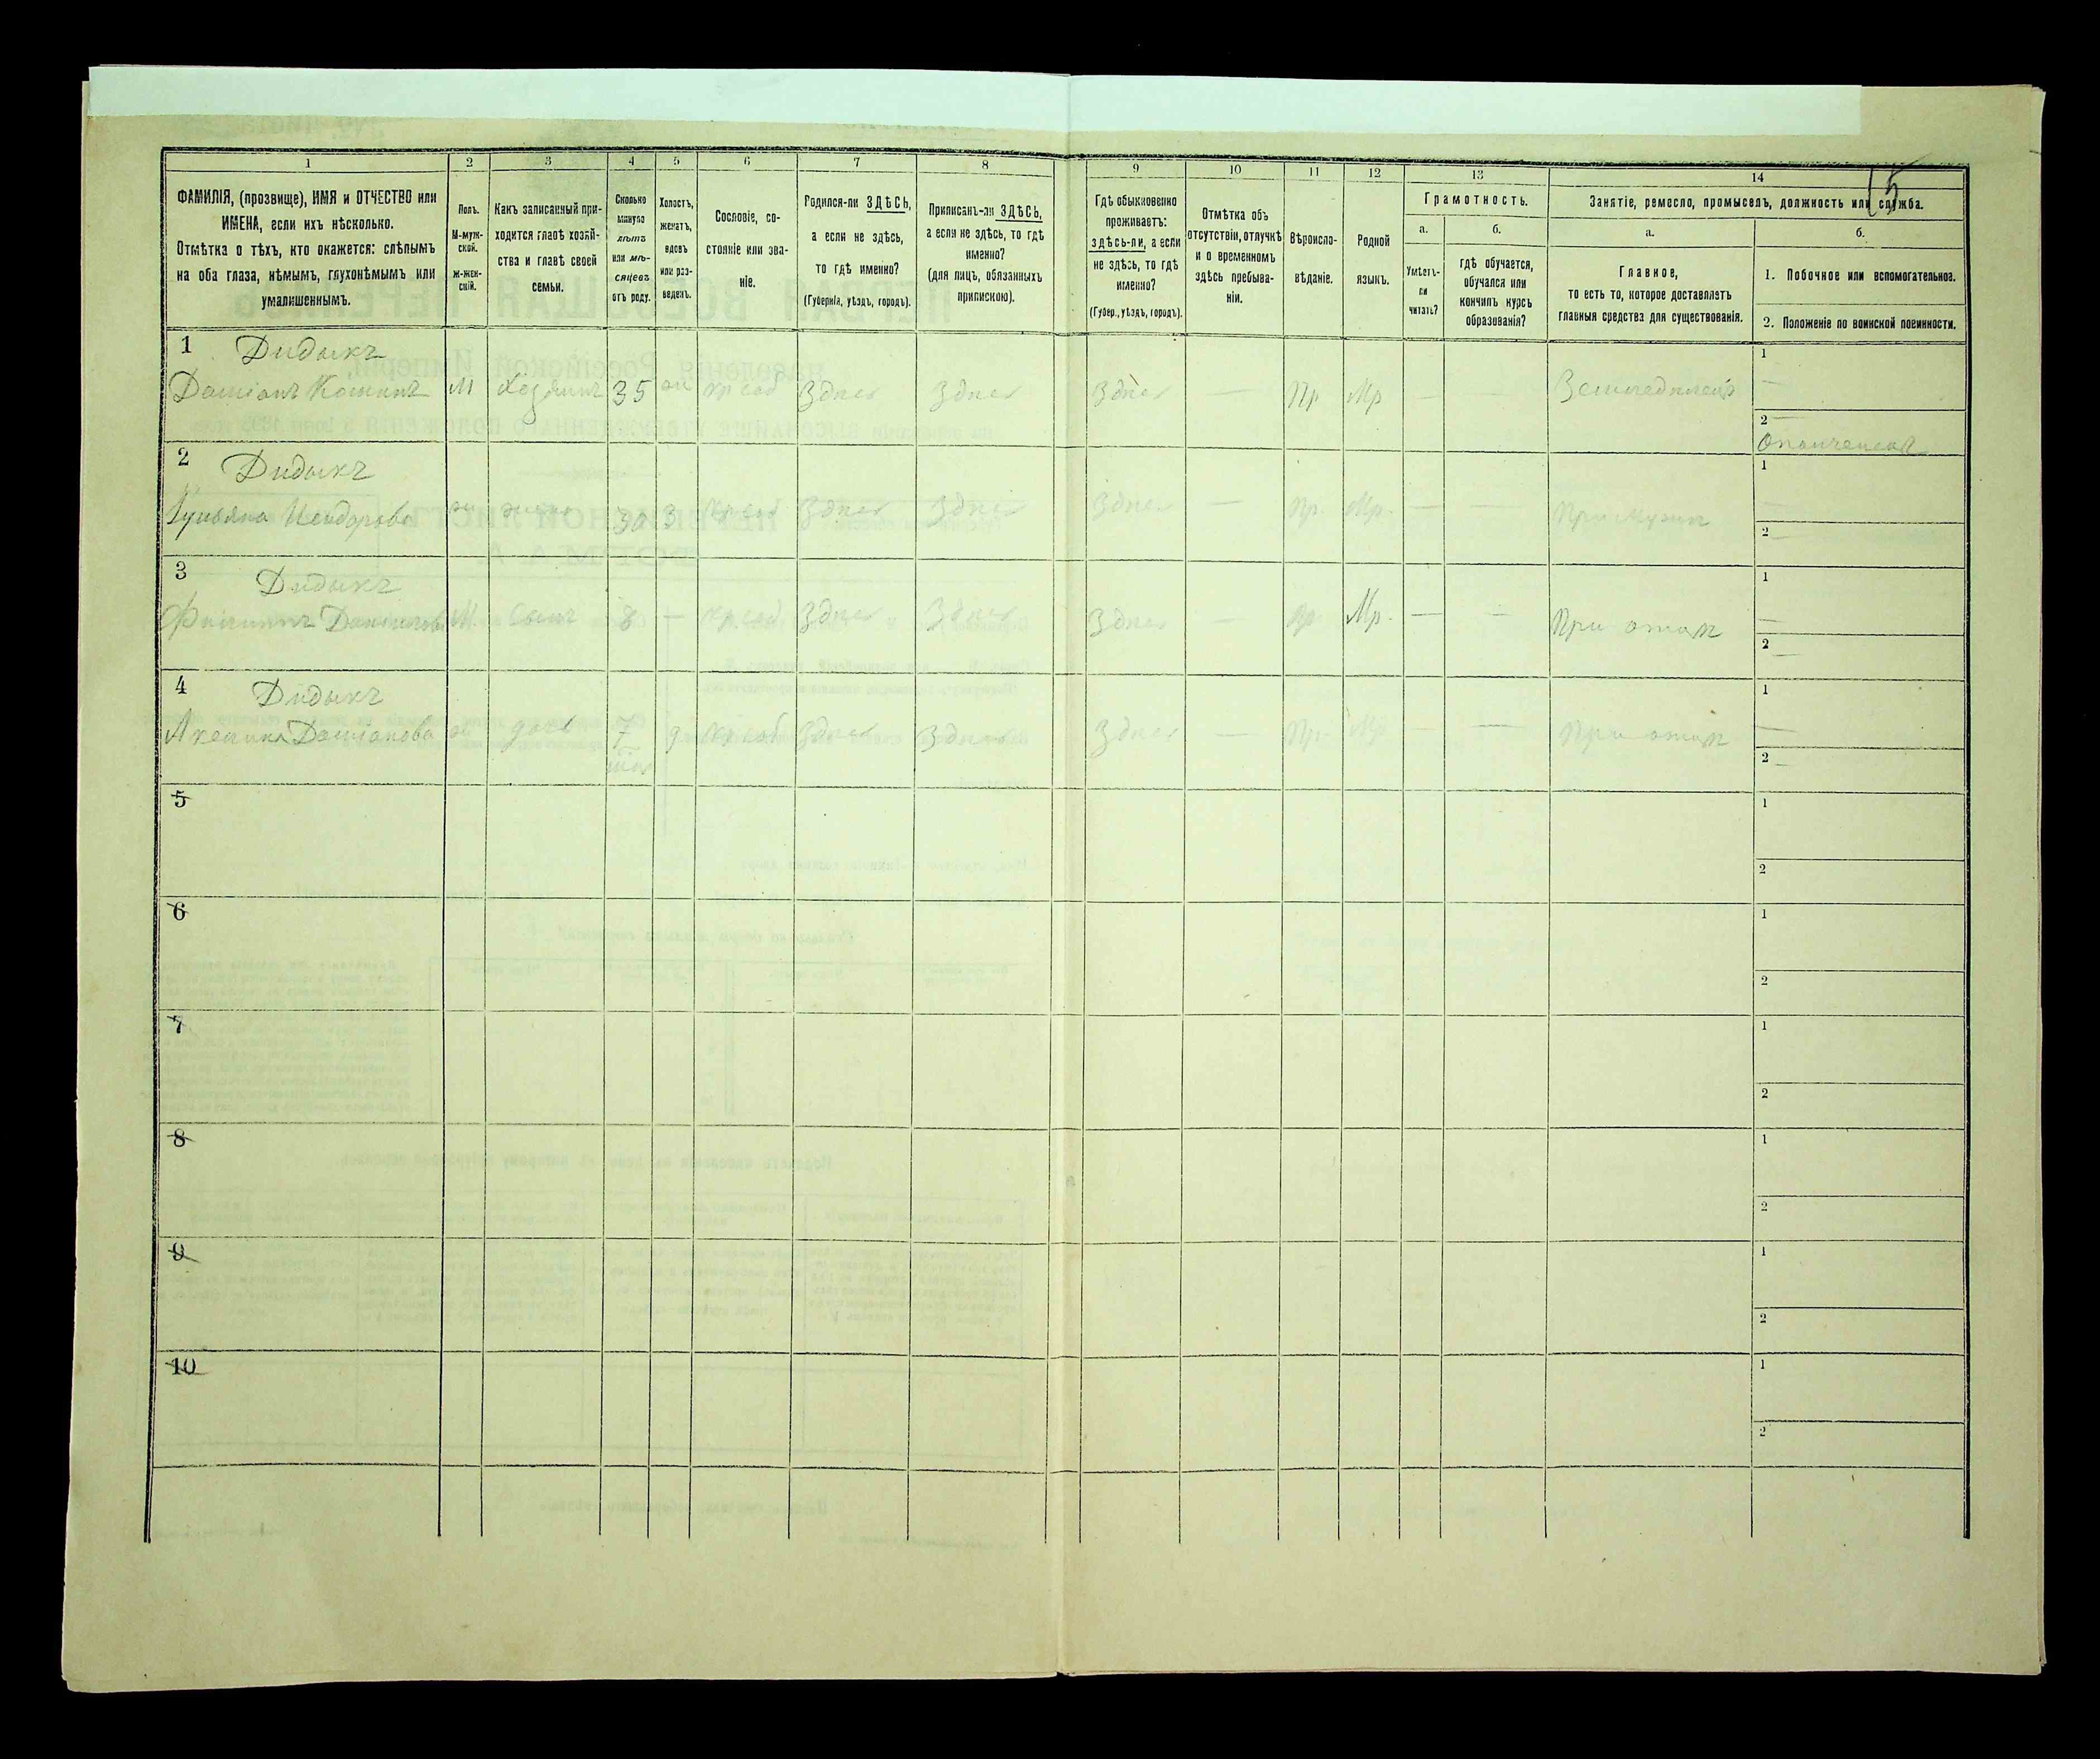 1 2 3 4 5 6 7 8 9 10 11 12 13 14
ФАМИЛІЯ, (прозвище), ИМЯ и ОТЧЕСТВО или
ИМЕНА, если ихъ нѣсколько.
Отмѣтка о тѣхъ, кто окажется: слѣпымъ
на оба глаза, нѣмымъ, глухонѣмымъ или
умалишеннымъ.
Полъ.
М-муж-
ской.
Ж-жен-
скій.
Какъ записанный при-
ходится главѣ хозяй-
ства и главѣ своей
семьи.
Сколько
минуло
лѣтъ
или мѣ-
сяцевъ
отъ роду.
Холостъ,
женатъ,
вдовъ
или раз-
веденъ.
Сословіе, со-
стояніе или зва-
ніе.
Родился-ли ЗДѢСЬ,
а если не здѣсь,
то гдѣ именно?
(Губернія, уѣздъ, городъ).
Приписанъ-ли ЗДѢСЬ,
а если не здѣсь, то гдѣ
именно?
(для лицъ, обязанныхъ
припискою).
Гдѣ обыкновенно
проживаетъ:
здѣсь-ли, а если
не здѣсь, то гдѣ
именно?
(Губер., уѣздъ, городъ).
Отмѣтка объ
отсутствіи, отлучкѣ
и о временномъ
здѣсь пребыва-
ніи.
Вѣроиспо-
вѣданіе.
Родной
языкъ.
Грамотность.
а.
Умѣетъ-
ли
читать?
б.
гдѣ обучается,
обучался или
кончилъ курсъ
образованія?
Занятіе, ремесло, промыселъ, должность или служба.
15
а.
Главное,
то есть то, которое доставляетъ
главныя средства для существованія.
б.
1. Побочное или вспомогательное.
2. Положеніе по воинской повинности.
1 Дидыкъ 1
М Хозяинъ 35 Кр соб Здѣсь Здѣсь Здѣсь — Пр Мр — — Земледѣлецъ —
2 —
2 Дидыкъ 1
Исидорова 30 Кр соб Здѣсь Здѣсь Здѣсь — Пр. Мр. — — При мужѣ —
2 —
3 Дидыкъ 1
М. Сынъ 8 — Кр. соб Здѣсь Здѣсь Здѣсь — Пр Мр. — — При отцѣ —
2 —
4 Дидыкъ 1
Даміанова 7 Кр соб Здѣсь Здѣсь Здѣсь — Пр. Мр — — При отцѣ —
2 —
5 1
2
6 1
2
7 1
2
8 1
2
9 1
2
10 1
2